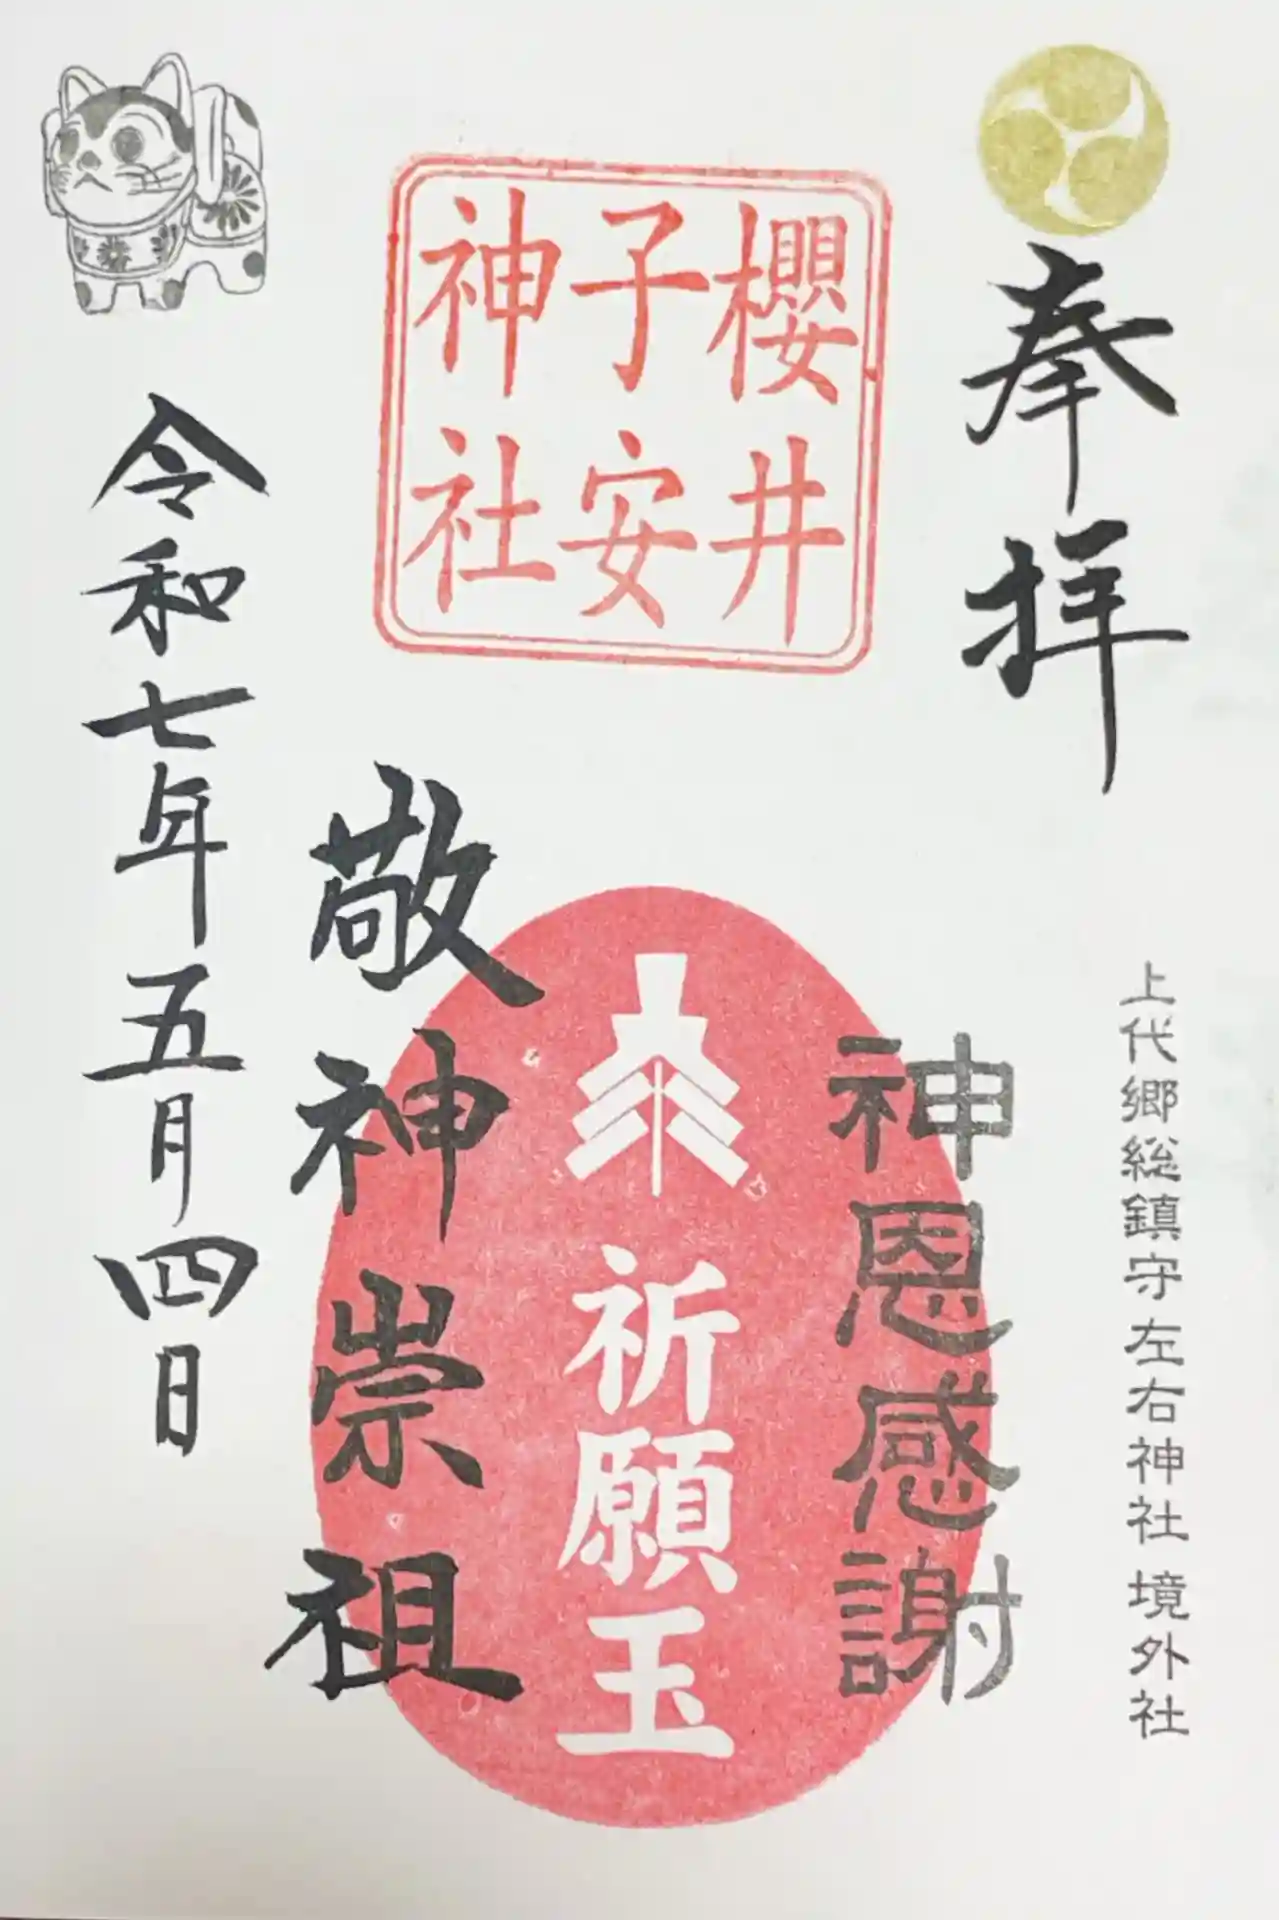 奉拝
上代郷総鎮守左右神社境外社
櫻井
子安
神社
神恩感謝
祈願玉
敬神崇祖
令和七年五月四日